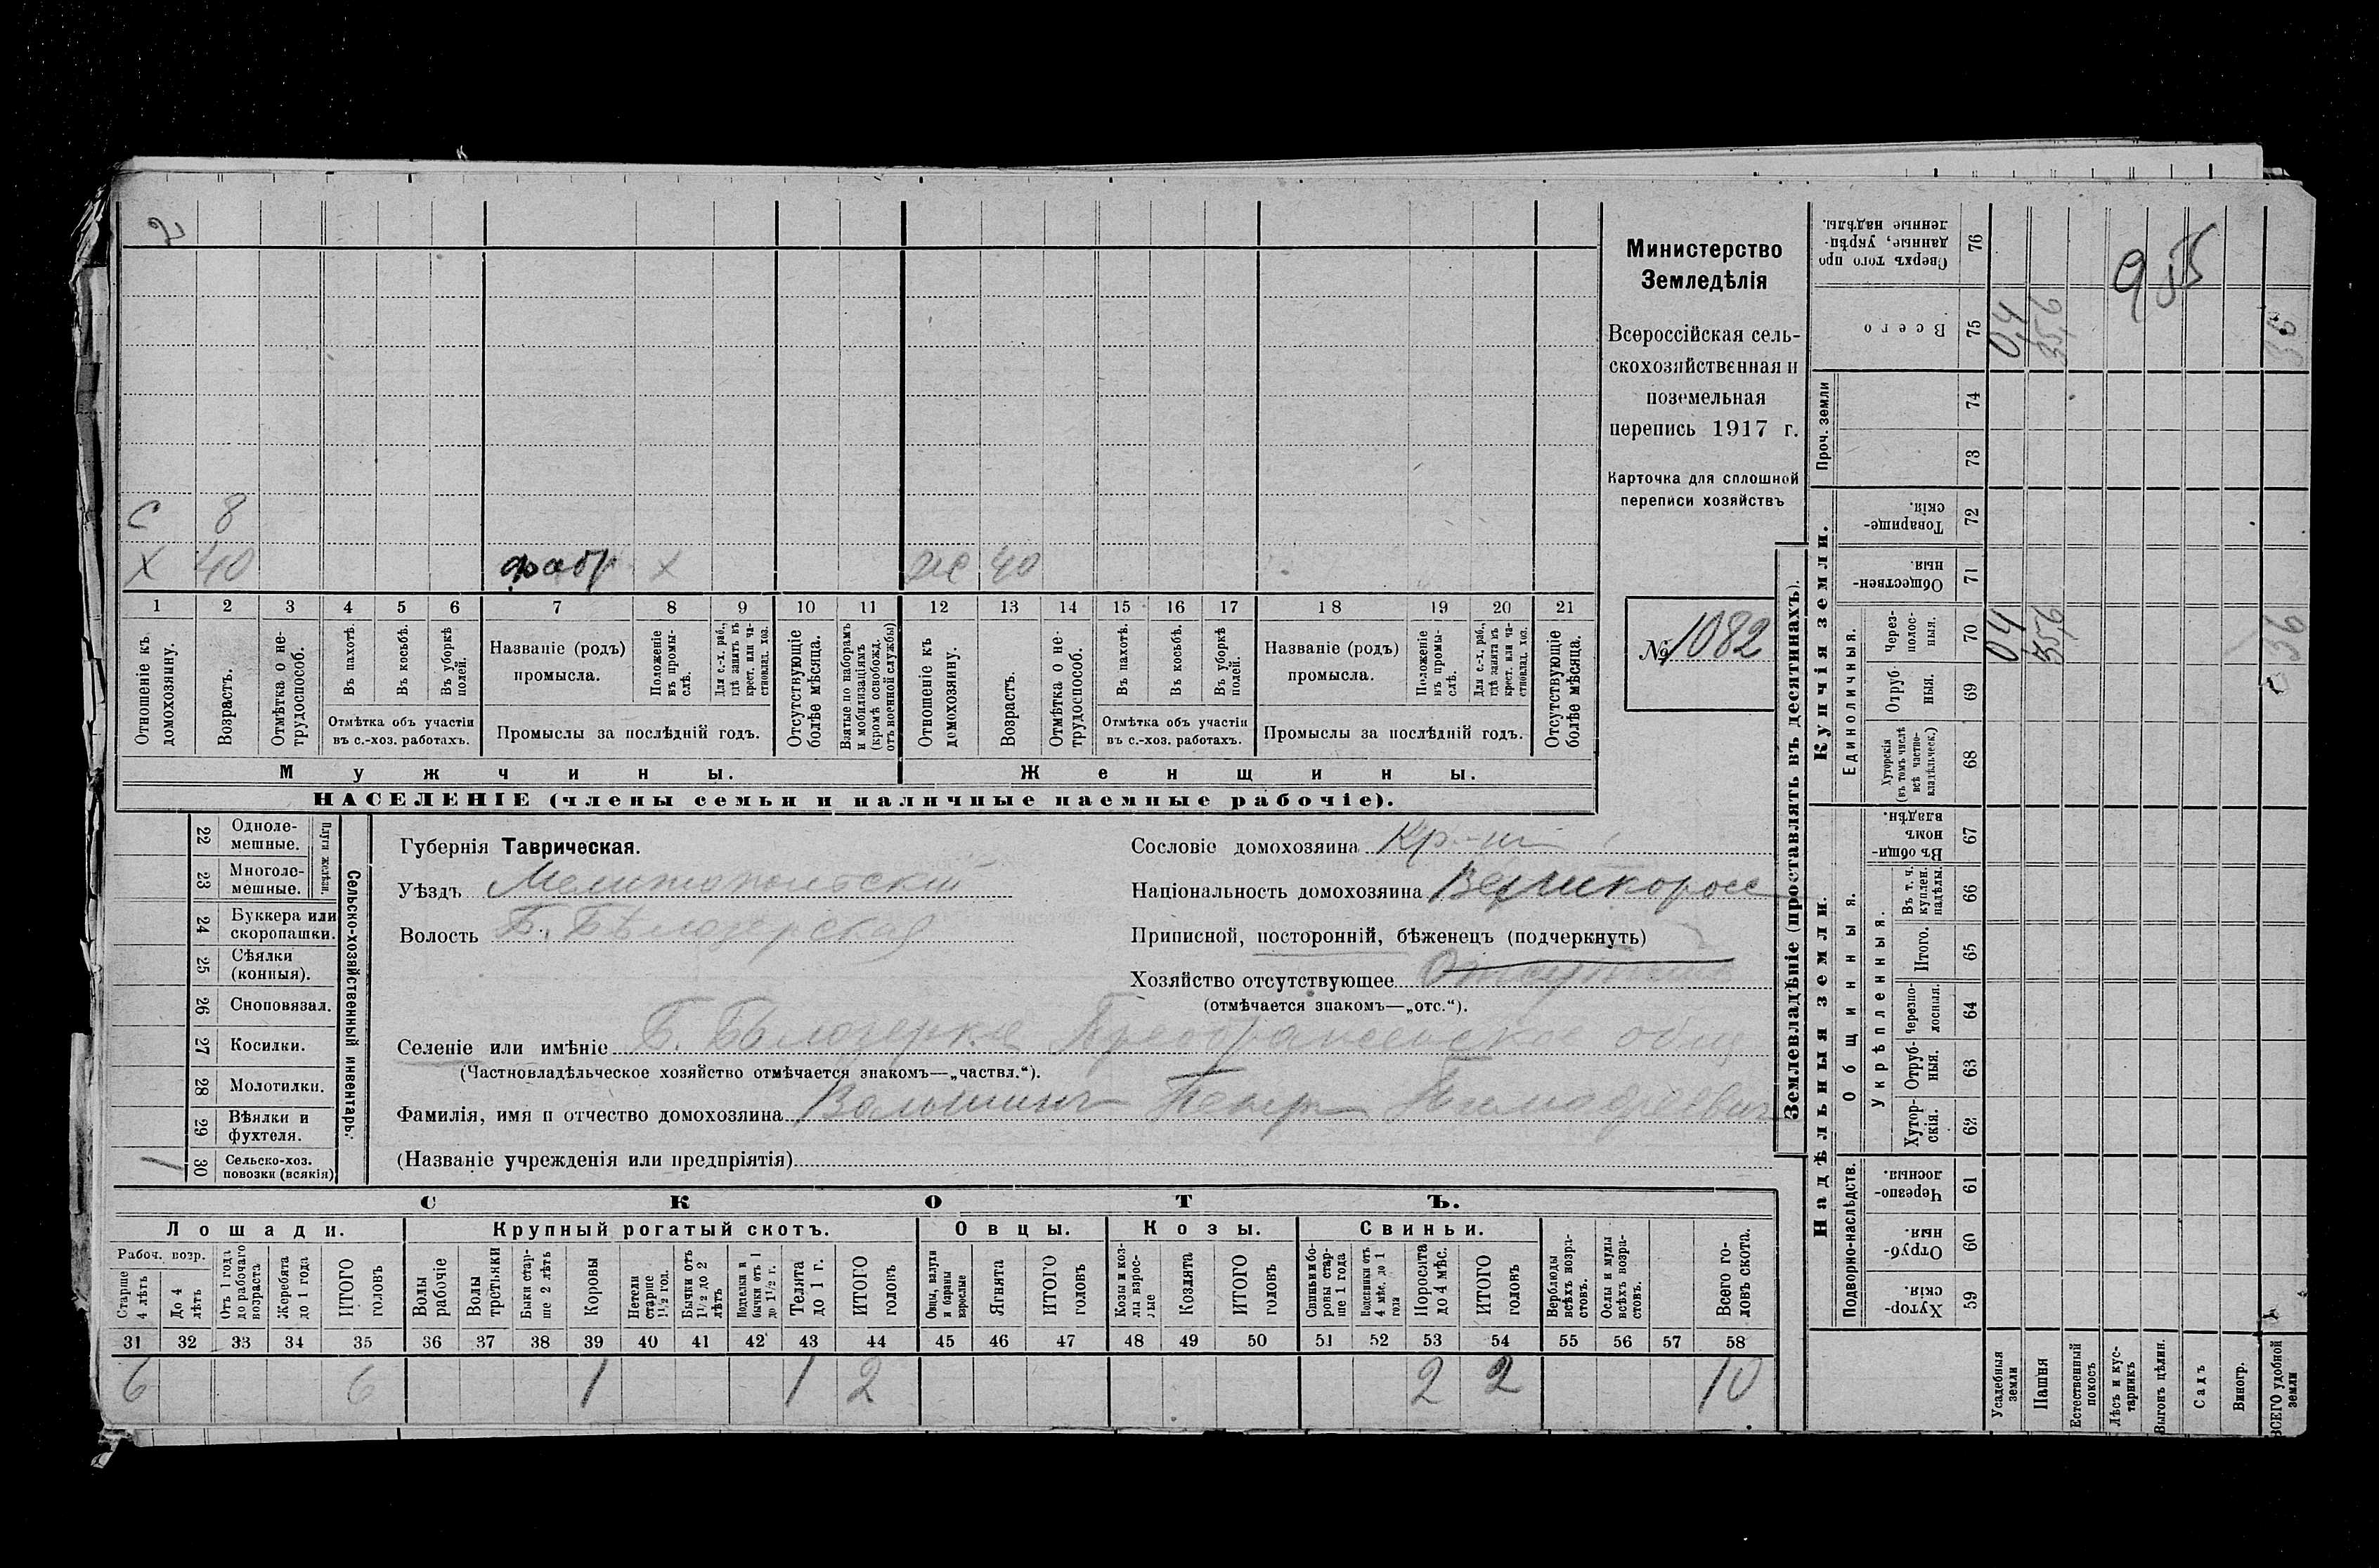 2
С 8
Х 40 фабр. х же 40
1 2 3 4 5 6 7 8 9 10 11 12 13 14 15 16 17 18 19 20 21
Отношеніе къ домохозяину.
Возрастъ.
Отмѣтка о не-трудоспособ.
Въ пахотѣ.
Въ косьбѣ.
Въ уборкѣ полей.
Отмѣтка объ участіи
въ с.-хоз. работахъ.
Названіе (родъ)
промысла.
Положеніе въ промы-слѣ.
Для с.-х. раб., гдѣ занятъ въ крест. или ча-стновлад. хоз.
Промыслы за послѣдній годъ.
Отсутствующіе болѣе мѣсяца.
Взятые по наборамъ и мобилизаціямъ (кромѣ освобожд. отъ военной службы)
Отношеніе къ домохозяину.
Возрастъ.
Отмѣтка о не-трудоспособ.
Въ пахотѣ.
Въ косьбѣ.
Въ уборкѣ полей.
Отмѣтка объ участіи
въ с.-хоз. работахъ.
Названіе (родъ)
промысла.
Положеніе въ промы-слѣ.
Для с.-х. раб., гдѣ занята въ крест. или ча-стновлад. хоз.
Промыслы за послѣдній годъ.
Отсутствующіе болѣе мѣсяца.
Мужчины.
Женщины.
НАСЕЛЕНІЕ (члены семьи и наличные наемные рабочіе).
Министерство
Земледѣлія
Всероссійская сель-
скохозяйственная и
поземельная
перепись 1917 г.
Карточка для сплошной
переписи хозяйствъ
№ 1082
22 Одноле-мешные.
23 Многоле-мешные.
Плуги желѣзн.
24 Буккера или скоропашки.
25 Сѣялки (конныя).
26 Сноповязал.
27 Косилки.
28 Молотилки.
29 Вѣялки и фухтеля.
1 30 Сельско-хоз. повозки (всякія)
Сельско-хозяйственный инвентарь.
Губернія Таврическая.
Уѣздъ Мелитопольскій
Волость Б. Бѣлозерская
Сословіе домохозяина Кр-нъ
Національность домохозяина Великоросс
Приписной, посторонній, бѣженецъ (подчеркнуть)
Хозяйство отсутствующее
(отмѣчается знакомъ—„отс.“).
Селеніе или имѣніе Б. Бѣлозерка Преображенское общ
(Частновладѣльческое хозяйство отмѣчается знакомъ—„частвл.“).
Фамилія, имя и отчество домохозяина Петръ
(Названіе учрежденія или предпріятія)
СКОТЪ.
Лошади. Крупный рогатый скотъ. Овцы. Козы. Свиньи.
Рабоч. возр.
Старше 4 лѣтъ
До 4 лѣтъ
Отъ 1 года до рабочаго возраста
Жеребята до 1 года
ИТОГО головъ
Волы рабочіе
Волы третьяки
Быки стар-ше 2 лѣтъ
Коровы
Нетели старше 1½ год.
Бычки отъ 1½ до 2 лѣтъ
Подтелки и бычки отъ 1 до 1½ г.
Телята до 1 г.
ИТОГО головъ
Овцы, валухи и бараны взрослые
Ягнята
ИТОГО головъ
Козы и коз-лы взрос-лые
Козлята
ИТОГО головъ
Свиньи и бо-ровы стар-ше 1 года
Подсвинки отъ 4 мѣс. до 1 года
Поросята до 4 мѣс.
ИТОГО головъ
Верблюды всѣхъ возра-стовъ.
Ослы и мулы всѣхъ возра-стовъ.
Всего го-ловъ скота.
31 32 33 34 35 36 37 38 39 40 41 42 43 44 45 46 47 48 49 50 51 52 53 54 55 56 57 58
6 6 1 1 2 2 2 10
Землевладѣніе (проставлять въ десятинахъ).
Надѣльныя земли.
Купчія земли.
Проч. земли
Подворно-наслѣдств.
Общинныя.
Укрѣпленныя.
Единоличныя.
Хутор-скія. 59
Отруб-ныя. 60
Черезпо-лосныя. 61
Хутор-скія. 62
Отруб-ныя. 63
Черезпо-лосныя. 64
Итого. 65
Въ т. ч. куплен. надѣлы. 66
Въ общин-номъ владѣн. 67
Хуторскія (въ томъ числѣ всѣ частно-владѣльческ.) 68
Отруб-ныя. 69
Через-полос-ныя. 70
Обществен-ныя. 71
Товарище-скія. 72
73
74
Всего 75
Сверхъ того про данные, укрѣп-ленные надѣлы. 76
Усадебныя земли 0,4 0,4
Пашня 35,6 35,6
Естественный покосъ
Лѣсъ и кус-тарникъ
Выгонъ цѣлин.
Садъ
Виногр.
ВСЕГО удобной земли 36 36
955